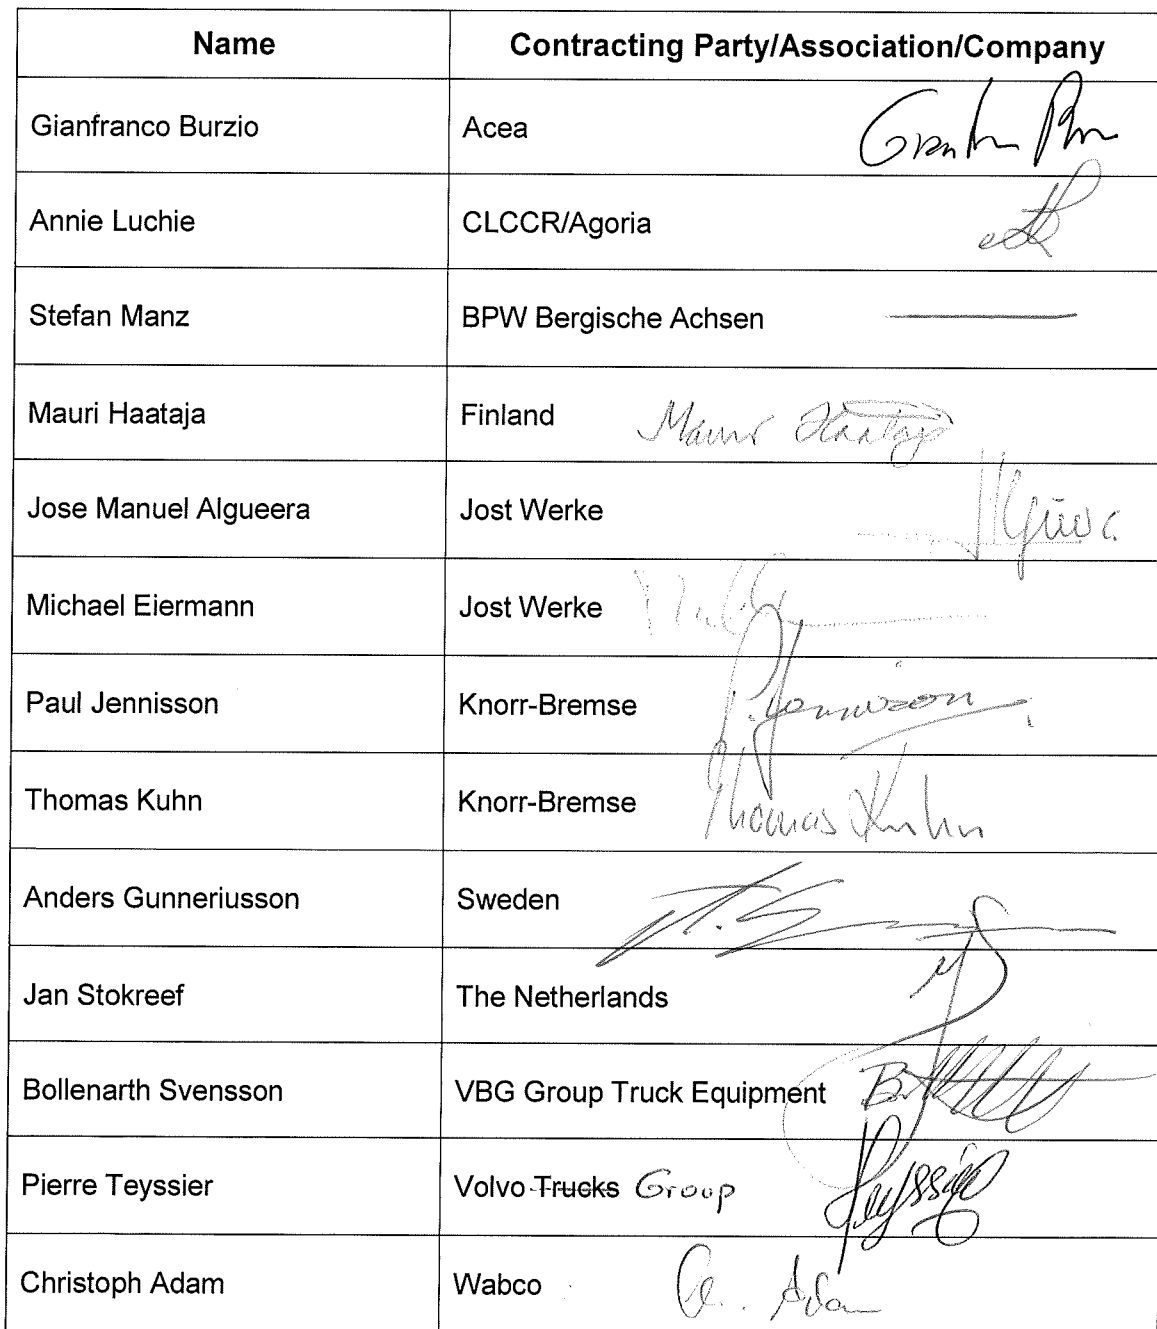 Name Contracting Party/Association/Company
Gianfranco Burzio Acea
Annie Luchie CLCCR/Agoria
Stefan Manz BPW Bergische Achsen
Mauri Haataja Finland Mauri Haataja
Jose Manuel Algueera Jost Werke
Michael Eiermann Jost Werke
Paul Jennisson Knorr-Bremse P. Jennisson
Thomas Kuhn Knorr-Bremse Thomas Kuhn
Anders Gunneriusson Sweden
Jan Stokreef The Netherlands
Bollenarth Svensson VBG Group Truck Equipment
Pierre Teyssier Volvo Trucks Group Teyssier
Christoph Adam Wabco Ch. Adam